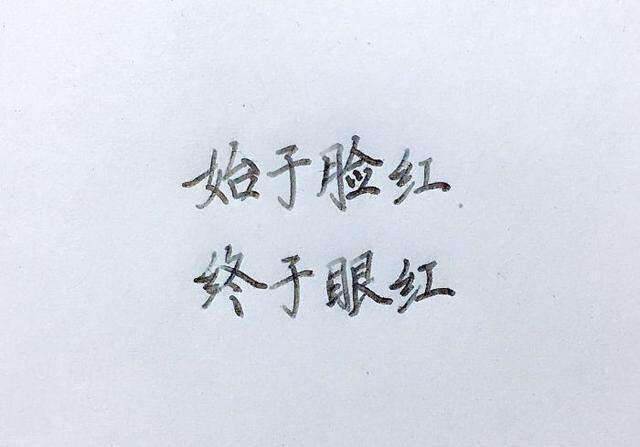 始于脸红
终于眼红